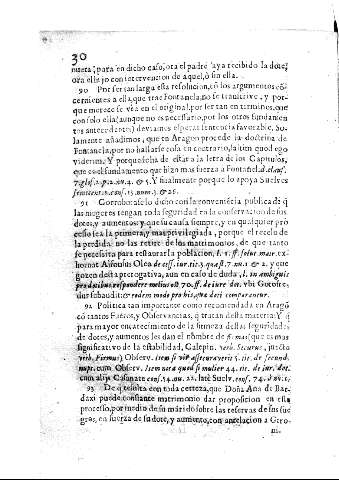 30
nueta, para en dicho caso, ora el padre aya recibido la dote,
ora ella, o con intervencion de aquel, ò sin ella.
90 Por ser tan larga esta resolucion, cõ los argumentos cõ-
cernientes a ella, que trae Fontanela, no se transcrive, y por-
que merece se vea en el original, por ser tan en terminos, que
con solo ella (aunque no es necessario, por los otros fundamen
tos antecedentes) deviamos esperar sentencia favorable, So-
lamente añadimos, que en Aragon procede la doctrina de
Fontanela, por no hallarse cosa en contrario, idem quod ego
viderim, Y porque sobre estar a la letra de los Capitulos,
que es el fundamento que hizo mas fuerza a Fontanel.
7. glos. 2. p. 2. nu. 4. & 5. Y finalmente porque lo apoya Suelves
semicent. 2. cons. 15. num. 5. & 26.
91 Corroborase lo dicho con la conveniencia publica de q̃
las mugeres tengan toda seguridad en la conservacion de sus
dotes, y aumentos, y que su causa siempre, y en qualquier pro
cesso sea la primera, y mas privilegiada, porque el rezelo de
la perdida no las retire de los matrimonios, de que tanto
se necessita para restaurar la poblacion, l. 1. ff. solut. matr. ex-
hornat Alfonsus Olea de cess. iur. tit. 3. quæst. 7. nu. 1. & 2. y que
gozen desta prerogativa, aun en caso de duda, l. in ambiguis
pro dotibus respondere melius est 70. ff. de iure dot. vbi Gotofre,
dus subaudit:
92 Politica tan importante como recomendada en Aragõ
cõ tantos Fueros, y Observancias, q̃ tratan desta materia: Y q̃
para mayor encarecimiento de la firmeza de las seguridades
de dotes, y aumentos les dan el nombre de que es mas
significativo de la estabilidad, Calepin. verb. Securus, juncto
verb. Firmus) Observ. Item si vir assecuraverit 5. tit. de secund.
nupt. cum Observ. Item nota quod si mulier 44. tit. de iur. dot.
cum alijs Casanate cons. 54. nu. 22. latè Suelv. cons. 74. à nu. 1.
93 De q̃ resulta con toda certeza, que Doña Ana de Bar-
daxi puede constante matrimonio dar proposicion en este
processo, por medio de su marido sobre las reservas de sus sue
gros, en fuerza de su dote, y aumento, con antelacion a Gero-
ni-